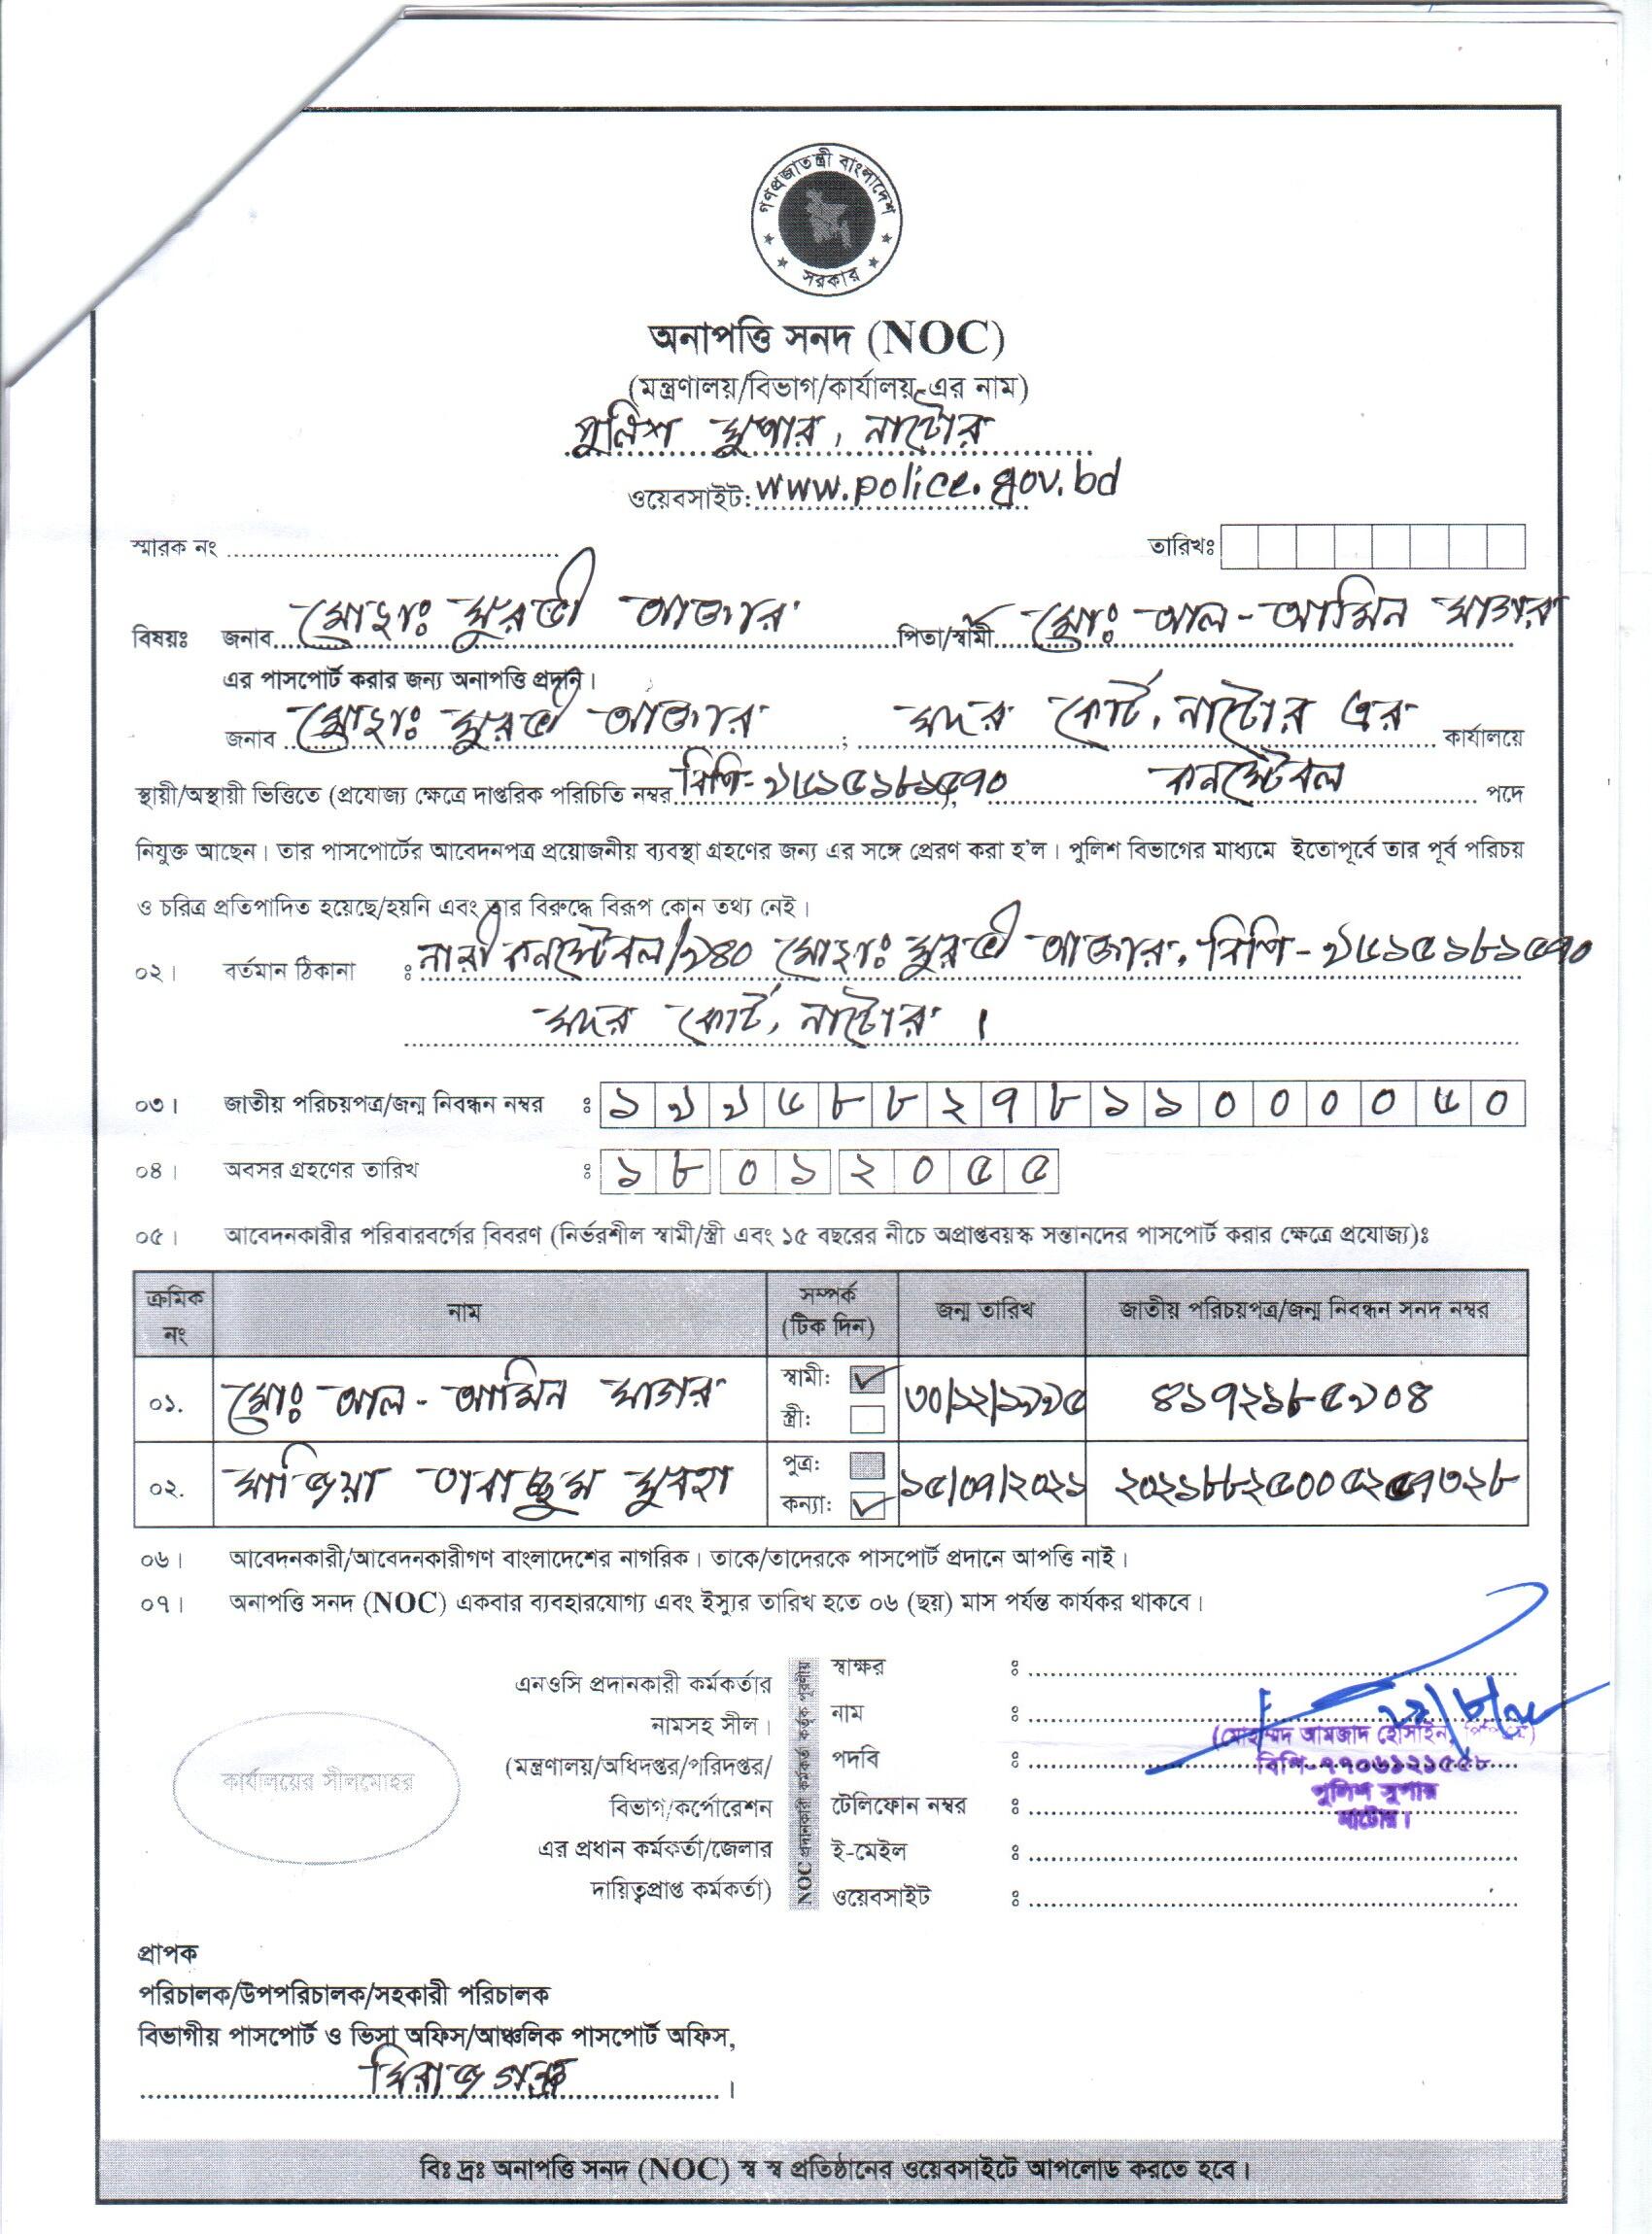 গণপ্রজাতন্ত্রী বাংলাদেশ
সরকার
অনাপত্তি সনদ (NOC)
(মন্ত্রণালয়/বিভাগ/কার্যালয়-এর নাম)
পুলিশ সুপার, নাটোর
ওয়েবসাইট: www.police.gov.bd
স্মারক নং
তারিখঃ
বিষয়ঃ জনাব মোছাঃ সুরভী আক্তার পিতা/স্বামী মোঃ আল-আমিন সাগর
এর পাসপোর্ট করার জন্য অনাপত্তি প্রদান।
জনাব মোছাঃ সুরভী আক্তার ; সদর কোর্ট, নাটোর এর কার্যালয়ে
স্থায়ী/অস্থায়ী ভিত্তিতে (প্রযোজ্য ক্ষেত্রে দাপ্তরিক পরিচিতি নম্বর বিপি-৯৬১৫১৮১৫৭০), কনস্টেবল পদে
নিযুক্ত আছেন। তার পাসপোর্টের আবেদনপত্র প্রয়োজনীয় ব্যবস্থা গ্রহণের জন্য এর সঙ্গে প্রেরণ করা হ'ল। পুলিশ বিভাগের মাধ্যমে ইতোপূর্বে তার পূর্ব পরিচয়
ও চরিত্র প্রতিপাদিত হয়েছে/হয়নি এবং তার বিরুদ্ধে বিরূপ কোন তথ্য নেই।
০২। বর্তমান ঠিকানা ঃ নারী কনস্টেবল/৯৪০ মোছাঃ সুরভী আক্তার, বিপি-৯৬১৫১৮১৫৭০
সদর কোর্ট, নাটোর।
০৩। জাতীয় পরিচয়পত্র/জন্ম নিবন্ধন নম্বর ঃ ১৯৯৬৮৮২৭৮১১০০০০৬০
০৪। অবসর গ্রহণের তারিখ ঃ ১৮ ০১ ২০৫৫
০৫। আবেদনকারীর পরিবারবর্গের বিবরণ (নির্ভরশীল স্বামী/স্ত্রী এবং ১৫ বছরের নীচে অপ্রাপ্তবয়স্ক সন্তানদের পাসপোর্ট করার ক্ষেত্রে প্রযোজ্য)ঃ
ক্রমিক নং নাম সম্পর্ক (টিক দিন) জন্ম তারিখ জাতীয় পরিচয়পত্র/জন্ম নিবন্ধন সনদ নম্বর
০১. মোঃ আল-আমিন সাগর স্বামী: ✓ ৩০/১২/১৯৯৫ ৪১৭২১৮৫৯০৪
স্ত্রী:
০২. সাজিয়া তাবাচ্ছুম সুবহা পুত্র: ১৫/০৭/২০২১
কন্যা: ✓
০৬। আবেদনকারী/আবেদনকারীগণ বাংলাদেশের নাগরিক। তাকে/তাদেরকে পাসপোর্ট প্রদানে আপত্তি নাই।
০৭। অনাপত্তি সনদ (NOC) একবার ব্যবহারযোগ্য এবং ইস্যুর তারিখ হতে ০৬ (ছয়) মাস পর্যন্ত কার্যকর থাকবে।
কার্যালয়ের সীলমোহর
এনওসি প্রদানকারী কর্মকর্তার
নামসহ সীল।
(মন্ত্রণালয়/অধিদপ্তর/পরিদপ্তর/
বিভাগ/কর্পোরেশন
এর প্রধান কর্মকর্তা/জেলার
দায়িত্বপ্রাপ্ত কর্মকর্তা)
NOC প্রদানকারী কর্মকর্তা কর্তৃক পূরণীয়
স্বাক্ষর ঃ
নাম ঃ
পদবি ঃ
টেলিফোন নম্বর ঃ
ই-মেইল ঃ
ওয়েবসাইট ঃ
(মোহাম্মদ আমজাদ হোসাইন,
বিপি-৭৭০৬১২১৫৫৮
পুলিশ সুপার
নাটোর।
প্রাপক
পরিচালক/উপপরিচালক/সহকারী পরিচালক
বিভাগীয় পাসপোর্ট ও ভিসা অফিস/আঞ্চলিক পাসপোর্ট অফিস,
সিরাজগঞ্জ।
বিঃ দ্রঃ অনাপত্তি সনদ (NOC) স্ব স্ব প্রতিষ্ঠানের ওয়েবসাইটে আপলোড করতে হবে।